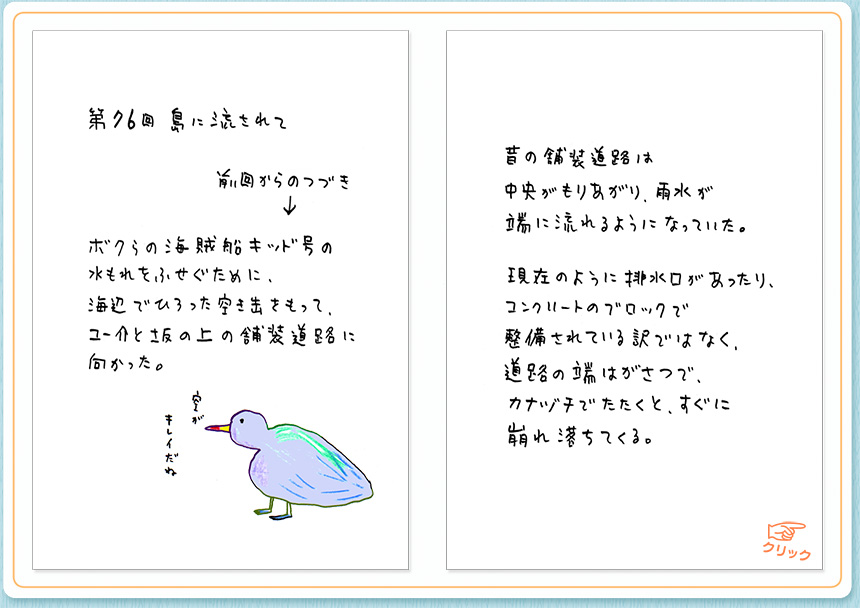 第76回 島に流されて
前回からのつづき
↓
ボクらの海賊船キッド号の
水もれをふせぐために、
海辺でひろった空き缶をもって、
ユー介と坂の上の舗装道路に
向かった。
空が
キレイだね
昔の舗装道路は
中央がもりあがり、雨水が
端に流れるようになっていた。
現在のように排水口があったり、
コンクリートのブロックで
整備されている訳ではなく、
道路の端はがさつで、
カナヅチでたたくと、すぐに
崩れ落ちてくる。
クリック